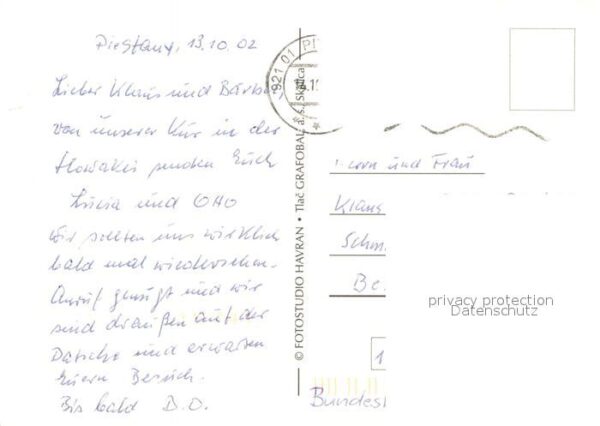 Piestany, 13.10.02
Lieber Klaus und Bärbel,
von unserer Kur in der
Slowakei senden Euch
Lucia und Otto
Wir sollten uns wirklich
bald mal wiedersehen.
Anruf genügt und wir
sind draußen auf der
Datsche und erwarten
Euern Besuch.
Bis bald
921 01 PI
© FOTOSTUDIO HAVRAN • Tlač GRAFOBAL, a. s., Skalica
und Frau
Klaus
privacy protection
Datenschutz
1